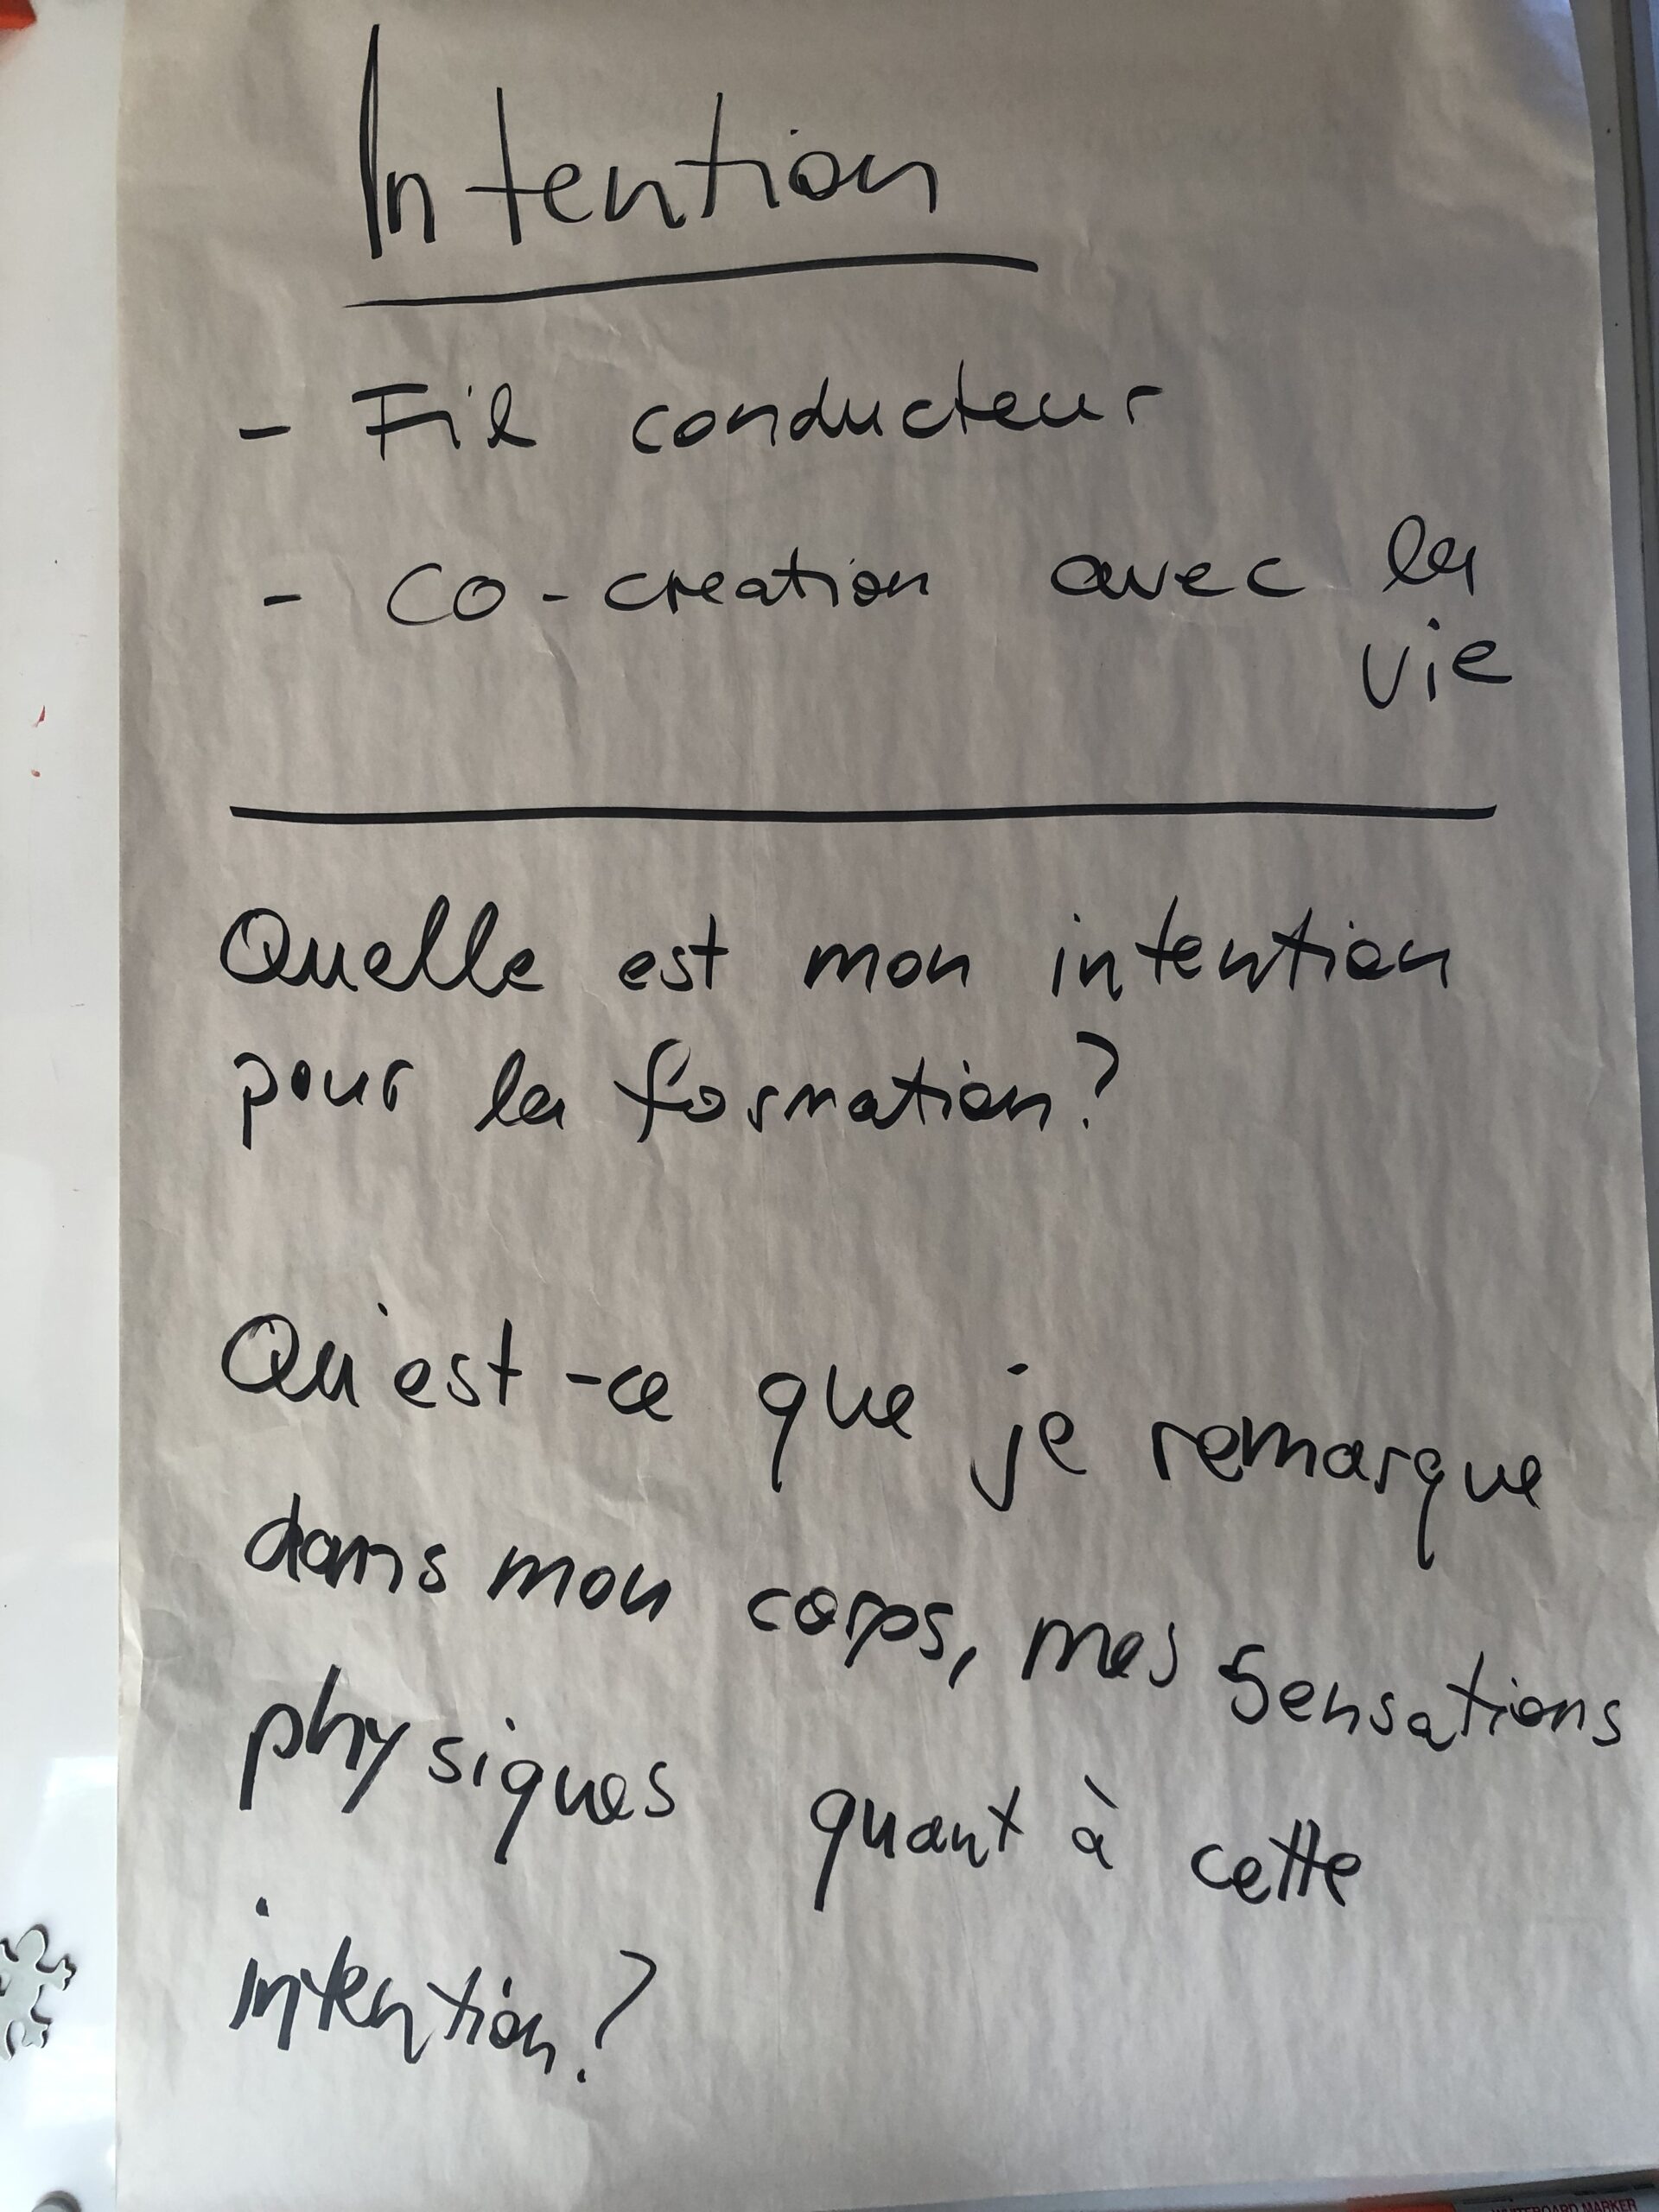 Intention
- Fil conducteur
- Co-creation avec la
vie
Quelle est mon intention
pour la formation?
Qu'est-ce que je remarque
dans mon corps, mes sensations
physiques quant à cette
intention?
WHITEBOARD MARKER